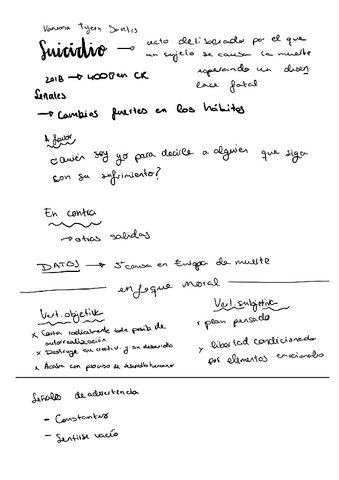 Vanessa
Suicidio → acto deliberado por el que
un sujeto se causa la muerte
esperando un desen
lace fatal
2018 → en CR
Señales
→ Cambios fuertes en los hábitos
A favor
¿Quién soy yo para decirle a alguien que siga
con su sufrimiento?
En contra
→ otras salidas
DATOS → 5ª causa en Europa de muerte
enfoque moral
Vert. objetiva
x Corta radicalmente toda posib. de
autorrealización
x Destruye su y su desarrollo
x Acaba con proceso de humano
Vert. subjetiva
plan pensado
libertad condicionada
por elementos emocionales
Señales de advertencia
- Constantes
- Sentirse vacío